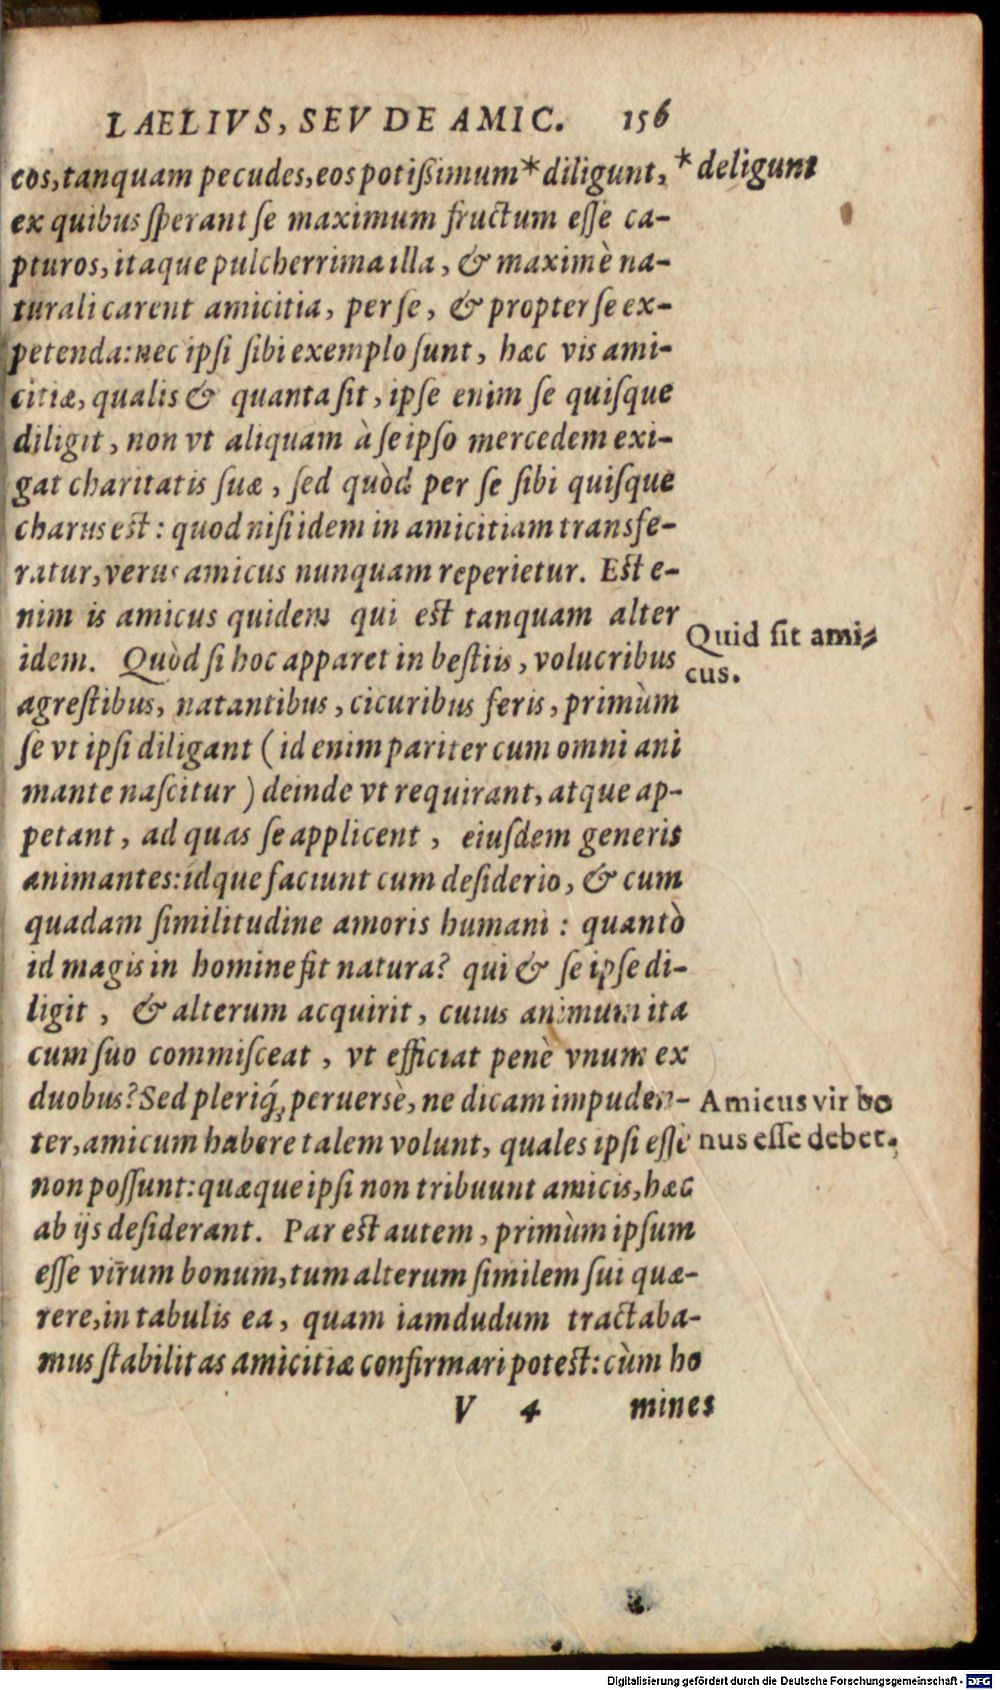 LAELIVS, SEV DE AMIC. 156
cos, tanquam pecudes, eos potißimum* diligunt, * deligunt
ex quibus ſperant ſe maximum fructum eſſe ca-
pturos, itaque pulcherrima illa, & maximè na-
turali carent amicitia, per ſe, & propter ſe ex-
petenda: nec ipſi ſibi exemplo ſunt, hæc vis ami-
citiæ, qualis & quanta ſit, ipſe enim ſe quiſque
diligit, non vt aliquam à ſe ipſo mercedem exi-
gat charitatis ſuæ, ſed quòd per ſe ſibi quiſque
charus eſt: quod niſi idem in amicitiam transfe-
ratur, verus amicus nunquam reperietur. Eſt e-
nim is amicus quidem qui eſt tanquam alter
idem. Quòd ſi hoc apparet in beſtiis, volucribus
Quid ſit ami-
cus.
agreſtibus, natantibus, cicuribus feris, primùm
ſe vt ipſi diligant (id enim pariter cum omni ani
mante naſcitur) deinde vt requirant, atque ap-
petant, ad quas ſe applicent, eiuſdem generis
animantes: idque faciunt cum deſiderio, & cum
quadam ſimilitudine amoris humani: quantò
id magis in homine fit natura? qui & ſe ipſe di-
ligit, & alterum acquirit, cuius animum ita
cum ſuo commiſceat, vt efficiat penè vnum ex
duobus? Sed pleriq́; peruersè, ne dicam impuden-
ter, amicum habere talem volunt, quales ipſi eſſe
Amicus vir bo
nus eſſe debet.
non poſſunt: quæque ipſi non tribuunt amicis, hæc
ab ijs deſiderant. Par eſt autem, primùm ipſum
eſſe virum bonum, tum alterum ſimilem ſui quæ-
rere, in tabulis ea, quam iamdudum tractaba-
mus ſtabilitas amicitiæ confirmari poteſt: cùm ho
V 4 mines
Digitalisierung gefördert durch die Deutsche Forschungsgemeinschaft - DFG